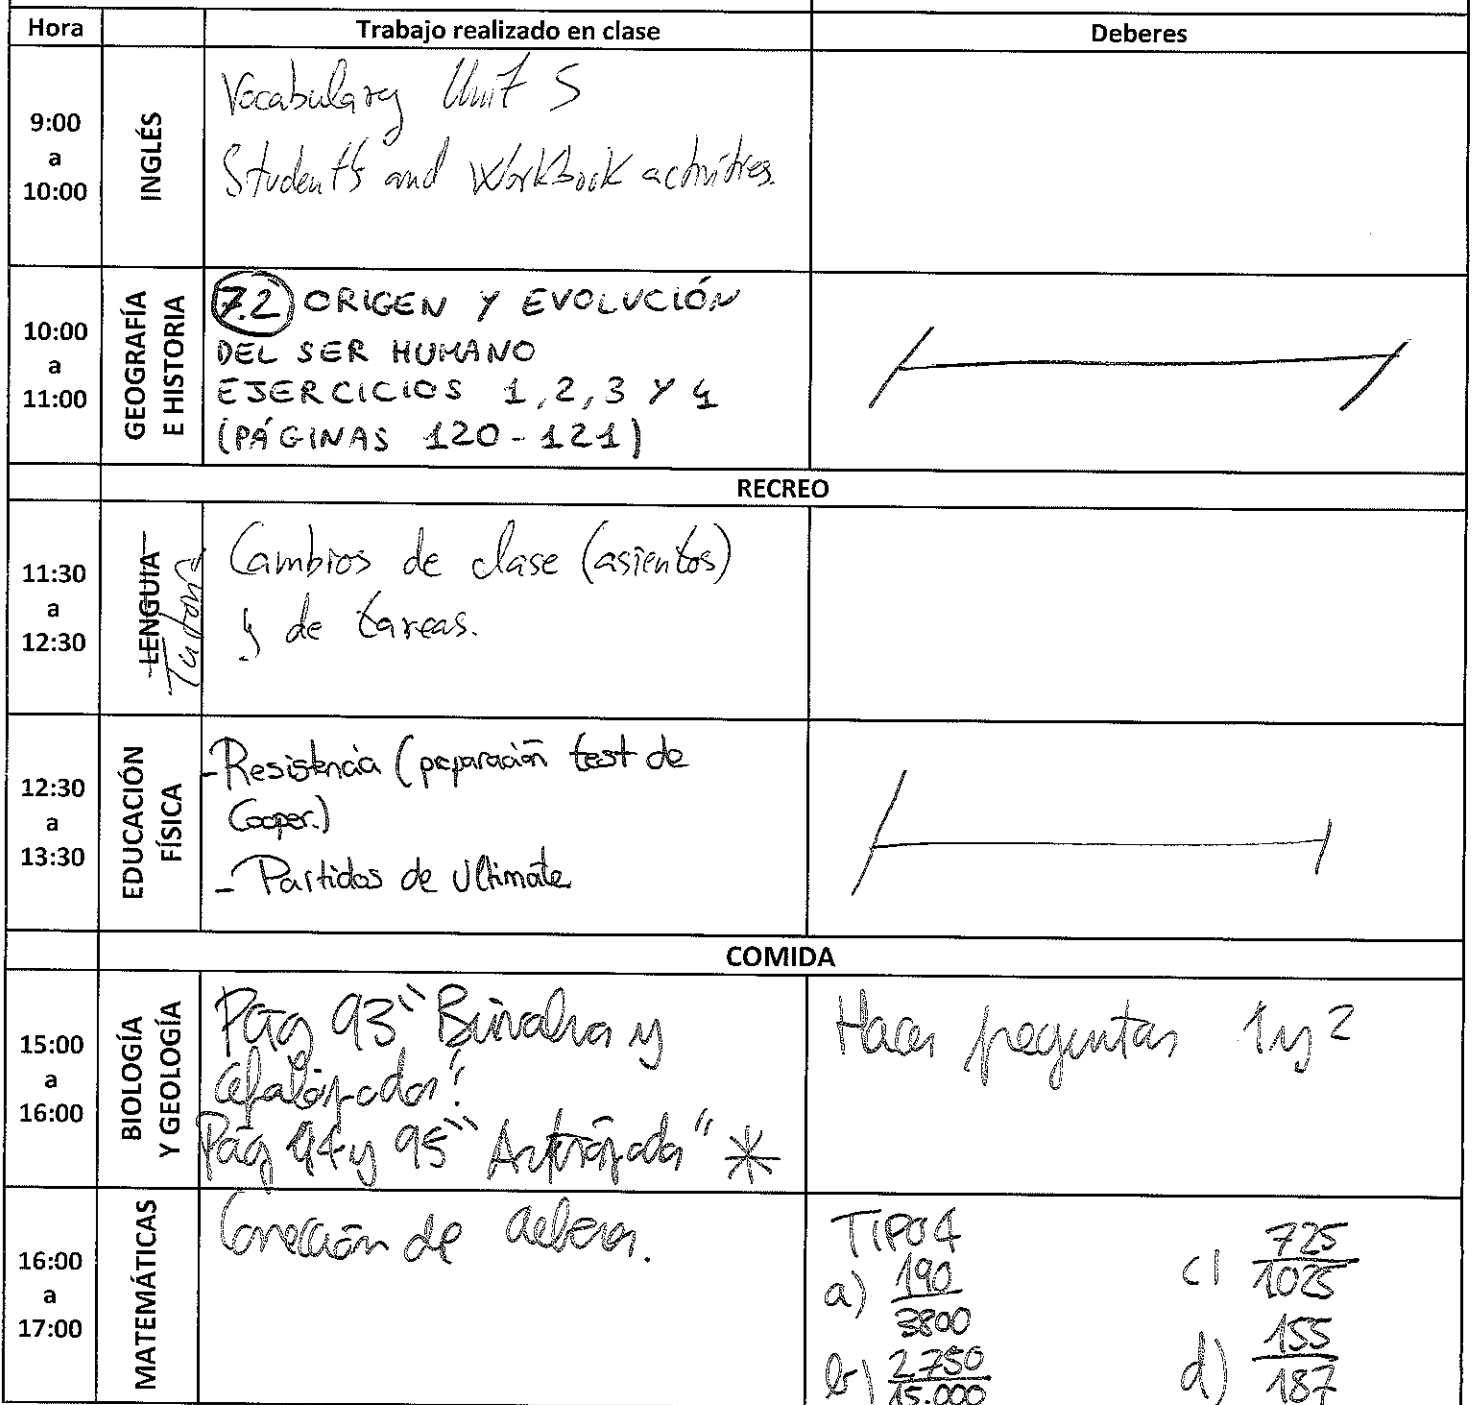 Hora Trabajo realizado en clase Deberes
9:00 a 10:00
INGLÉS
Vocabulary Unit 5
Student's and WorkBook activities.
10:00 a 11:00
GEOGRAFÍA E HISTORIA
7.2 ORIGEN Y EVOLUCIÓN
DEL SER HUMANO
EJERCICIOS 1, 2, 3 Y 4
(PÁGINAS 120-121)
RECREO
11:30 a 12:30
LENGUIA
Tutoría
Cambios de clase (asientos)
y de tareas.
12:30 a 13:30
EDUCACIÓN FÍSICA
- Resistencia (preparación test de
Cooper.)
- Partidos de Ultimate
COMIDA
15:00 a 16:00
BIOLOGÍA Y GEOLOGÍA
Pág 93 "Bivalvos y
Cefalópodos"
Pág 94 y 95 "Artrópodos" *
Hacer preguntas 1 y 2
16:00 a 17:00
MATEMÁTICAS
Corrección de deberes.
TIPO 4
a) 190/3800
b) 2.750/15.000
c) 725/1025
d) 155/187